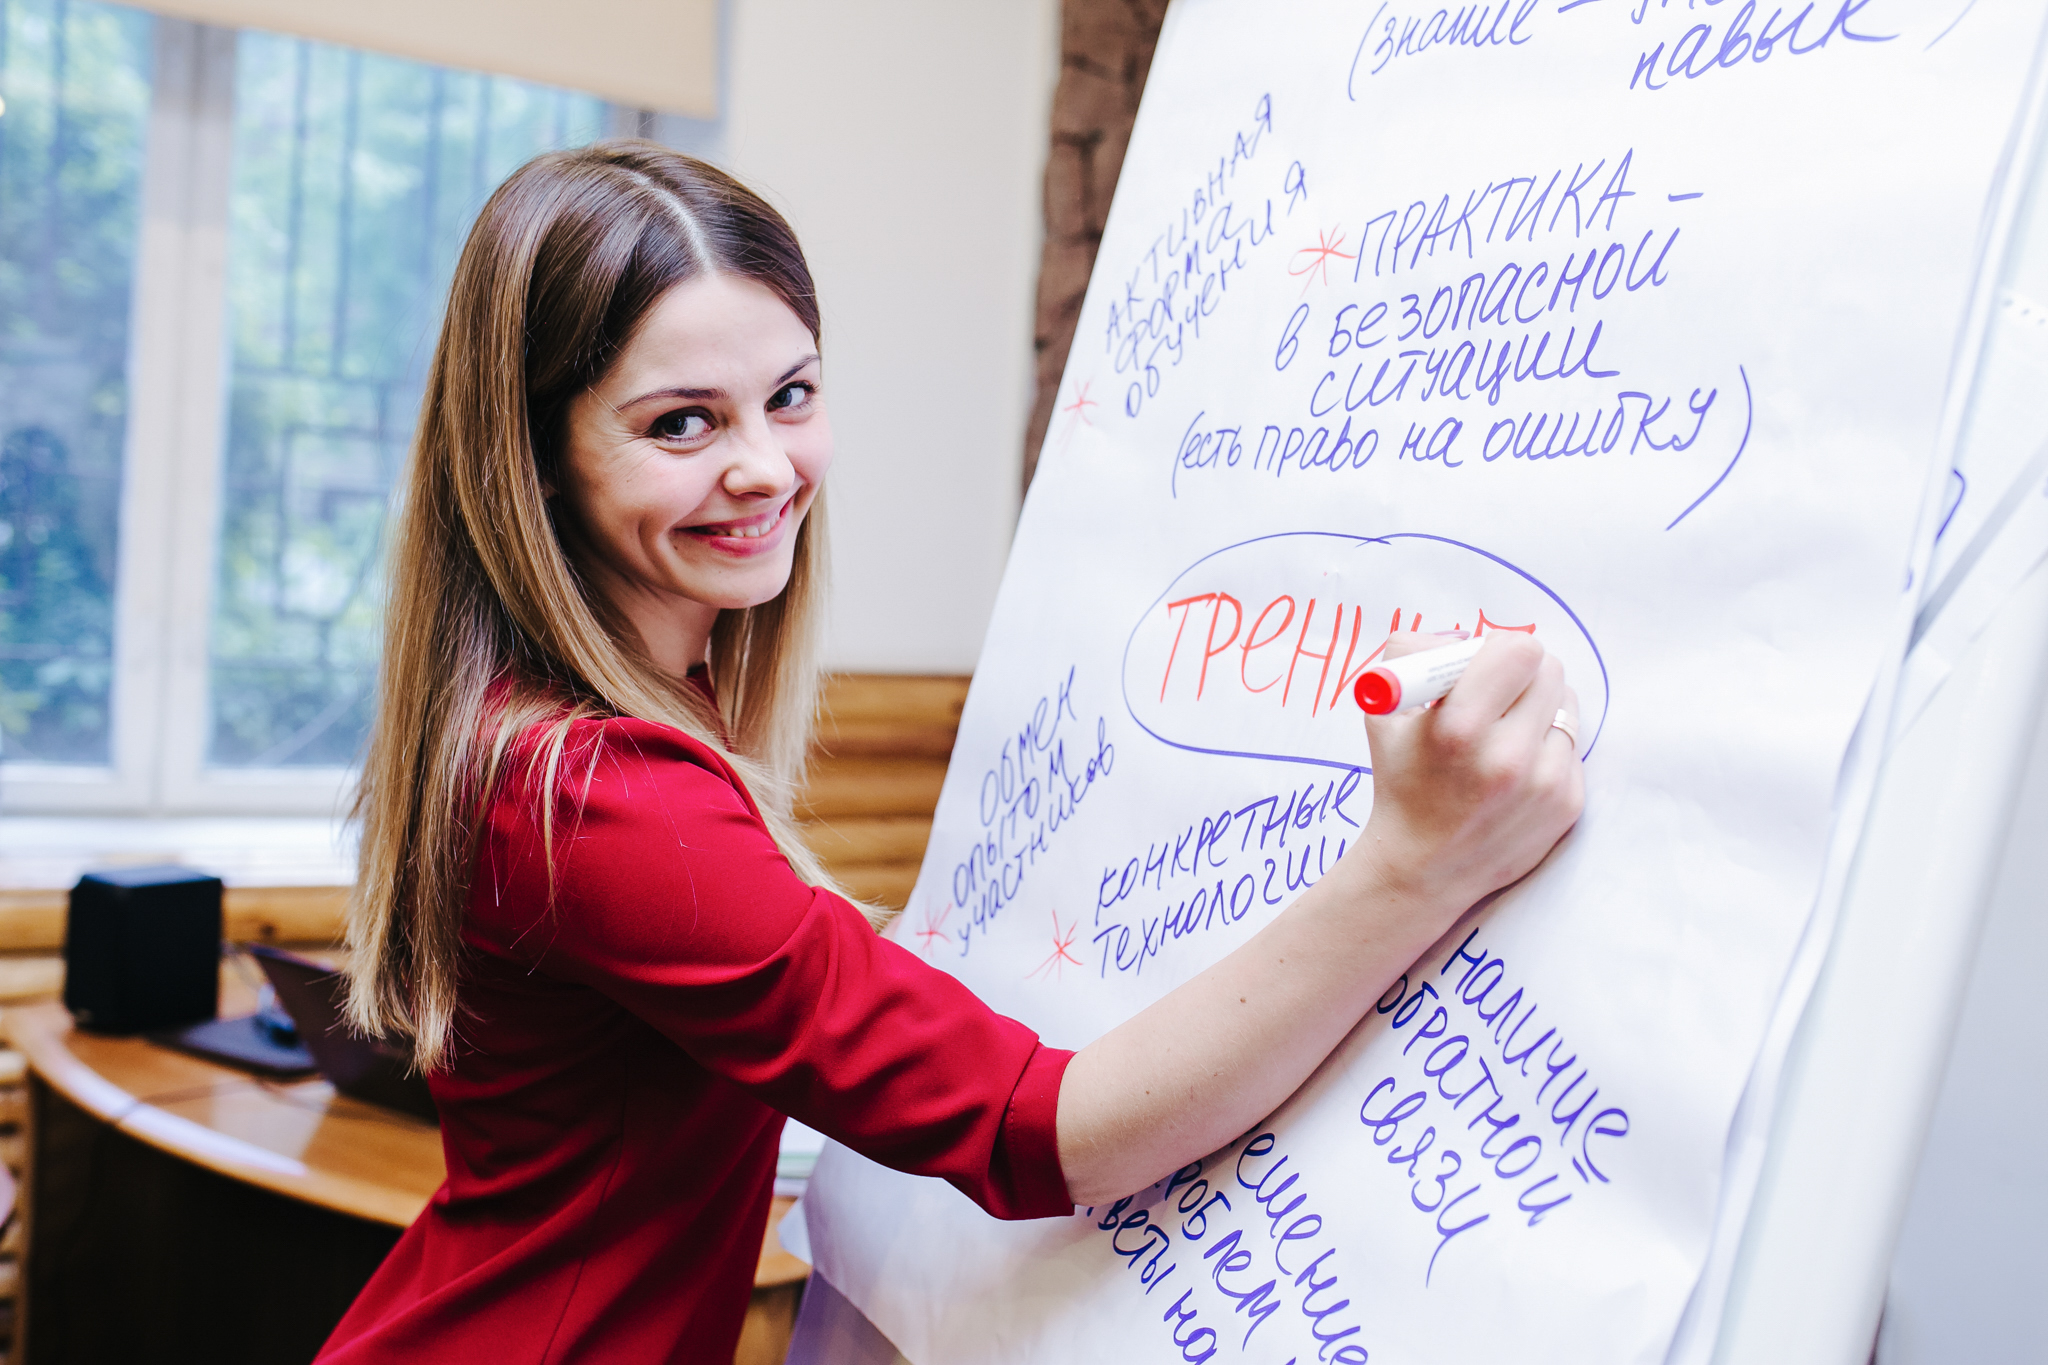 (знание –
навык)
АКТИВНАЯ
ФОРМА
ОБУЧЕНИЯ
* ПРАКТИКА –
в БЕЗОПАСНОЙ
СИТУАЦИИ
(есть право на ошибку)
ТРЕНИНГ
ОБМЕН
ОПЫТОМ
участников
* КОНКРЕТНЫЕ
ТЕХНОЛОГИИ
НАЛИЧИЕ
ОБРАТНОЙ
СВЯЗИ
на